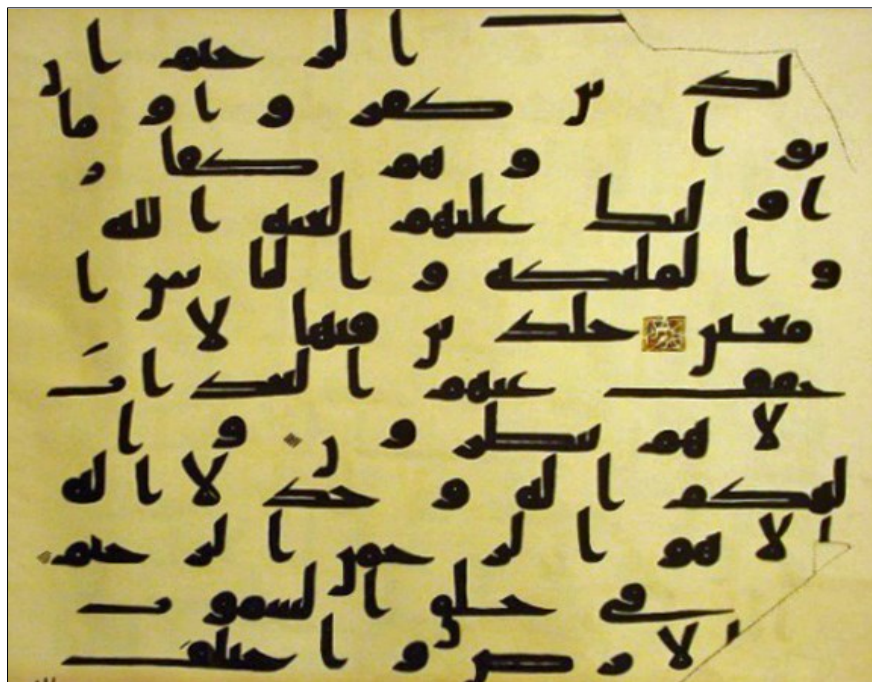 الرحيم ان
لذين كفروا وما
توا وهم كفار
اولئك عليهم لعنة الله
والملئكة والناس ا
جمعين خلدين فيها لا ي
خفف عنهم العذاب
لا هم ينظرون وا
لهكم اله وحد لا اله
الا هو الرحمن الرحيم
في خلق السموت
الارض واختلف